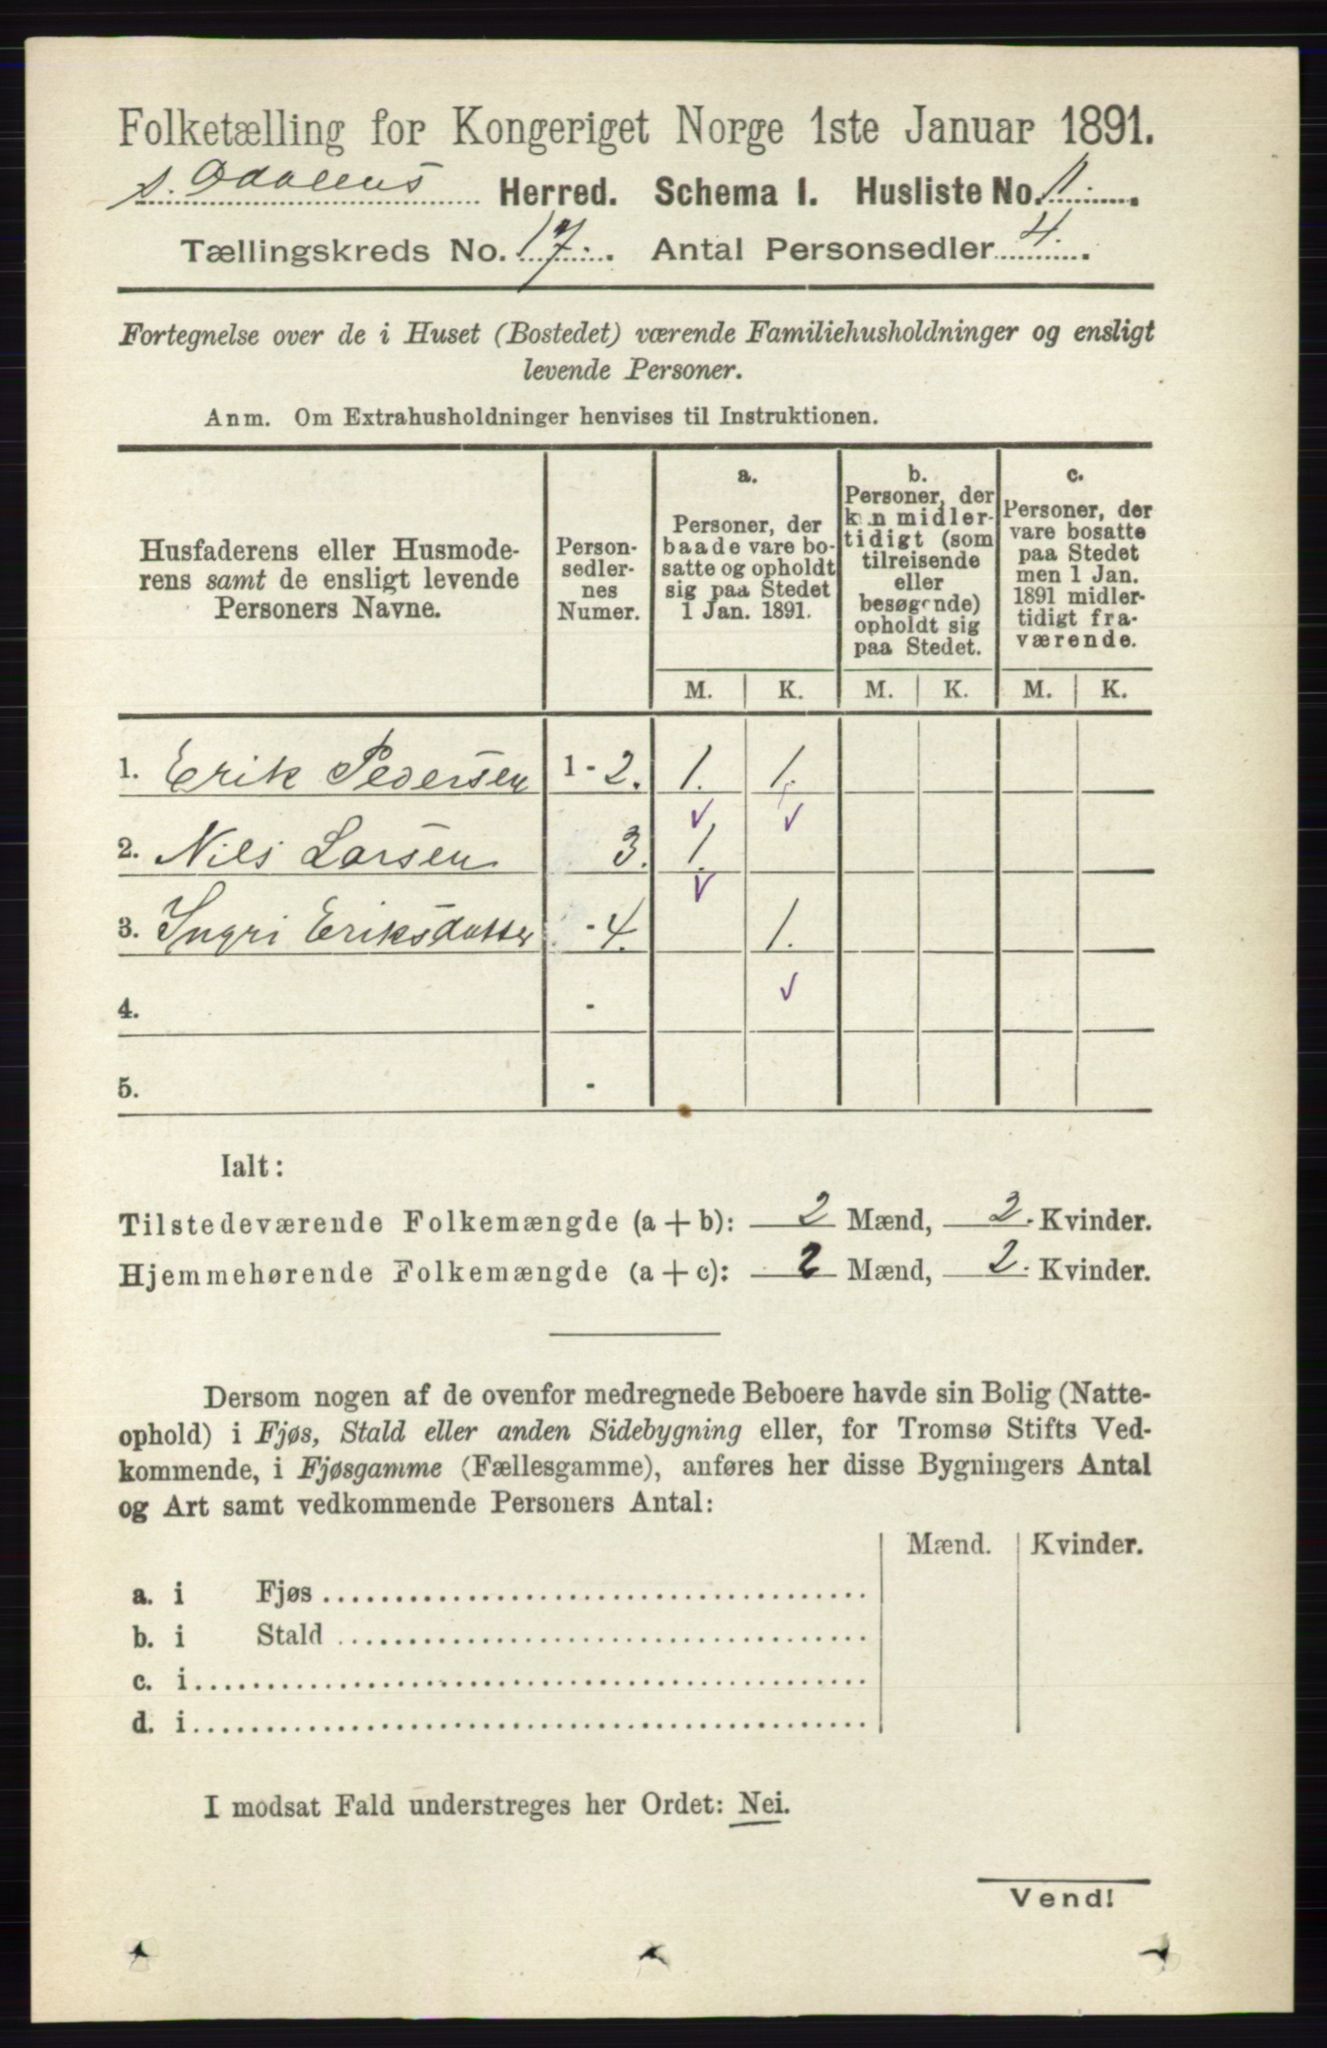 Folketælling for Kongeriget Norge 1ste Januar 1891.
S. Odalens Herred. Schema I. Husliste No. 1.
Tællingskreds No. 17. Antal Personsedler 4.
Fortegnelse over de i Huset (Bostedet) værende Familiehusholdninger og ensligt
levende Personer.
Anm. Om Extrahusholdninger henvises til Instruktionen.
Husfaderens eller Husmode-
rens samt de ensligt levende
Personers Navne.
Person-
sedler-
nes
Numer.
a.
Personer, der
baade vare bo-
satte og opholdt
sig paa Stedet
1 Jan. 1891.
b.
Personer, der
kun midler-
tidigt (som
tilreisende
eller
besøgende)
opholdt sig
paa Stedet.
c.
Personer, der
vare bosatte
paa Stedet
men 1 Jan.
1891 midler-
tidigt fra-
værende.
M. K. M. K. M. K.
1. Erik Pedersen 1 - 2. 1. 1.
2. Nils Larsen 3. 1.
3. Ingri Eriksdatter - 4. 1.
4. -
5. -
Ialt:
Tilstedeværende Folkemængde (a + b): 2 Mænd, 2. Kvinder.
Hjemmehørende Folkemængde (a + c): 2 Mænd, 2. Kvinder.
Dersom nogen af de ovenfor medregnede Beboere havde sin Bolig (Natte-
ophold) i Fjøs, Stald eller anden Sidebygning eller, for Tromsø Stifts Ved-
kommende, i Fjøsgamme (Fællesgamme), anføres her disse Bygningers Antal
og Art samt vedkommende Personers Antal:
Mænd. Kvinder.
a. i Fjøs
b. i Stald
c. i
d. i
I modsat Fald understreges her Ordet: Nei.
Vend!